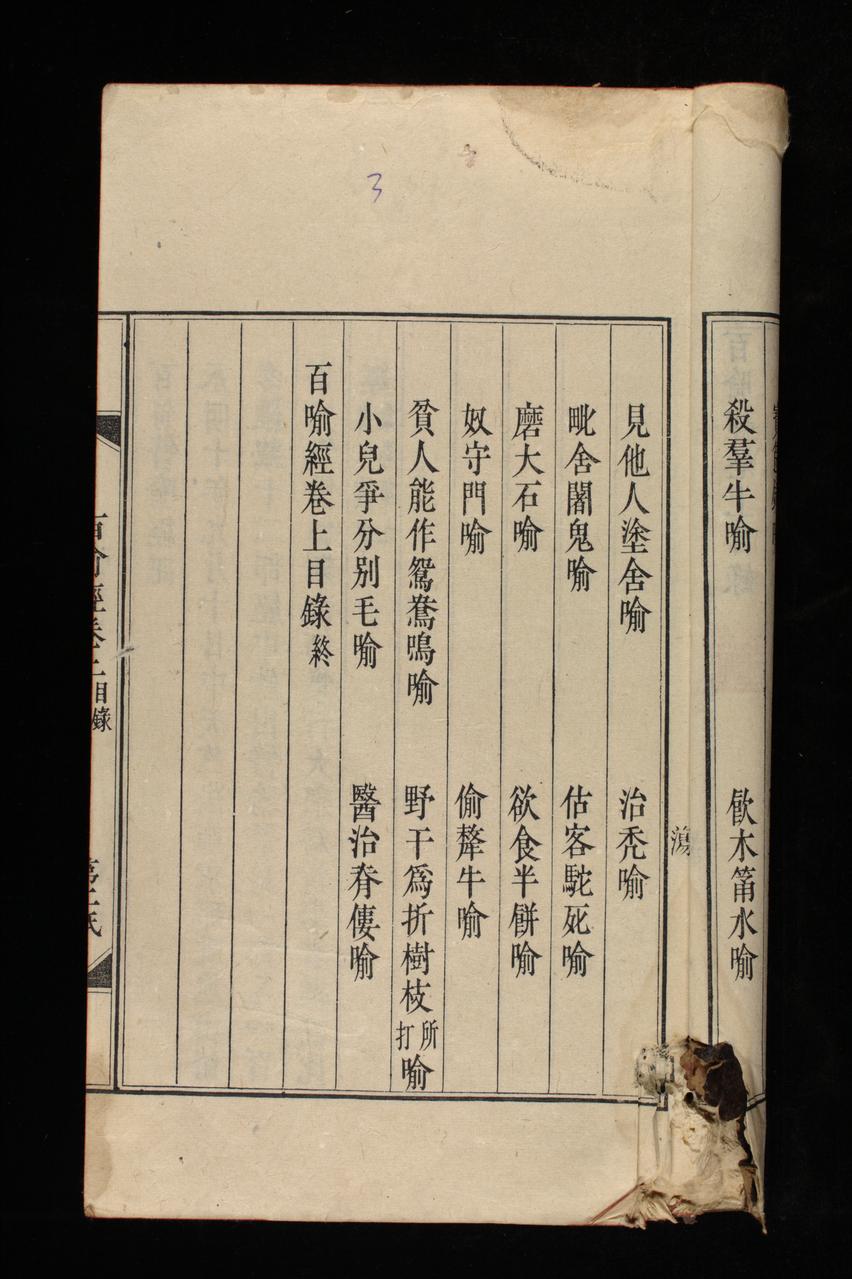 殺羣牛喻
飲木筩水喻
蕩
見他人塗舍喻
治禿喻
毗舍闍鬼喻
估客駝死喻
磨大石喻
欲食半餅喻
奴守門喻
偷犛牛喻
貧人能作鴛鴦鳴喻
野干爲折樹枝所打喻
小兒爭分別毛喻
醫治脊僂喻
百喻經卷上目錄終
百喻經卷上目錄
3